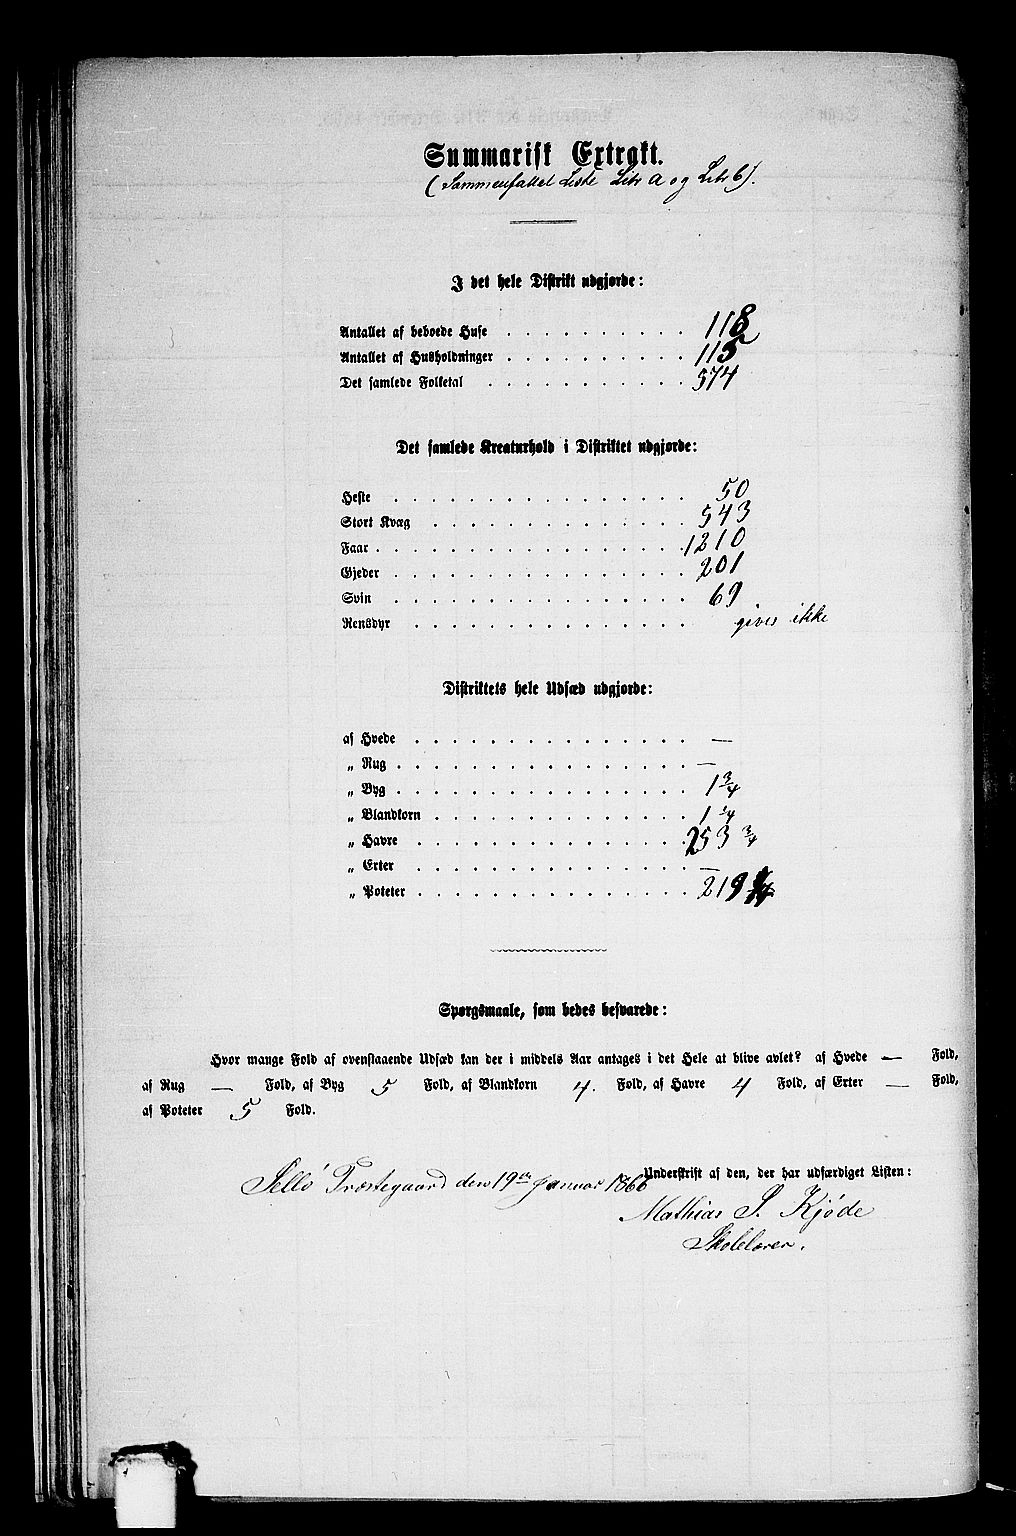 Summarisk Extrakt.
(Sammenfattet Liste Litr a og Litr b).
I det hele Distrikt udgjorde:
Antallet af beboede Huse . . . . . . . . . . 118
Antallet af Husholdninger . . . . . . . . . . 115
Det samlede Folketal . . . . . . . . . . . 574
Det samlede Kreaturhold i Distriktet udgjorde:
Heste . . . . . . . . . . . . . . . . 50
Stort Kvæg . . . . . . . . . . . . . . 543
Faar . . . . . . . . . . . . . . . . . 1210
Gjeder . . . . . . . . . . . . . . . . 201
Svin . . . . . . . . . . . . . . . . 69
Rensdyr . . . . . . . . . . . . . . . gives ikke
Distriktets hele Udsæd udgjorde:
af Hvede . . . . . . . . . . . . . . . —
„ Rug . . . . . . . . . . . . . . . . —
„ Byg . . . . . . . . . . . . . . . . 1 3/4
„ Blandkorn . . . . . . . . . . . . . . 1 1/4
„ Havre . . . . . . . . . . . . . . . 253 3/4
„ Erter . . . . . . . . . . . . . . . —
„ Poteter . . . . . . . . . . . . . . . 219
Spørgsmaale, som bedes besvarede:
Hvor mange Fold af ovenstaaende Udsæd kan der i middels Aar antages i det Hele at blive avlet? af Hvede — Fold,
af Rug — Fold, af Byg 5 Fold, af Blandkorn 4. Fold, af Havre 4 Fold, af Erter — Fold,
af Poteter 5 Fold.
Underskrift af den, der har udfærdiget Listen:
Sellø Præstegaard den 19de Januar 1866
Mathias S. Kjøde
Skolelærer.